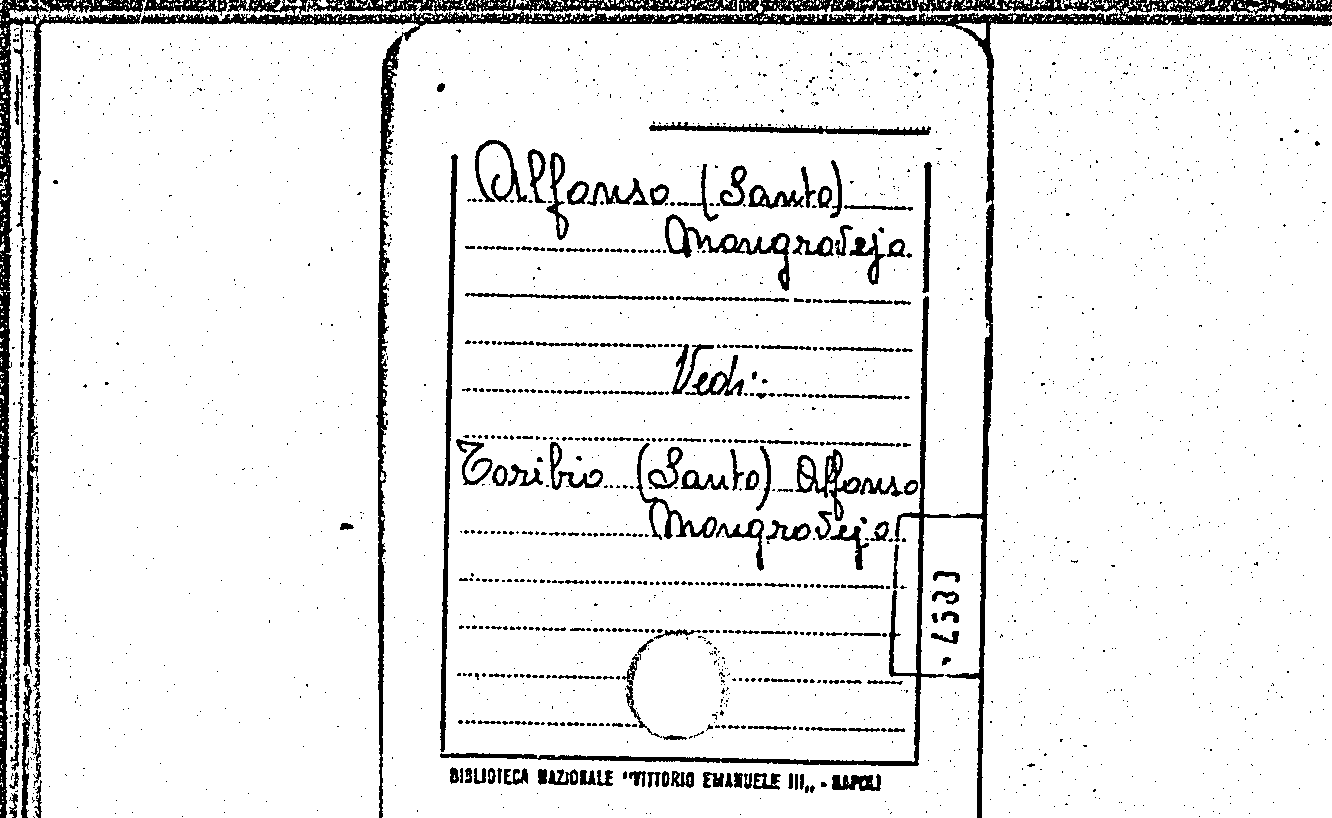 Alfonso (Santo)
Mongrovejo.
Vedi:
Toribio (Santo) Alfonso
Mongrovejo
BIBLIOTECA NAZIONALE "VITTORIO EMANUELE III„ - NAPOLI